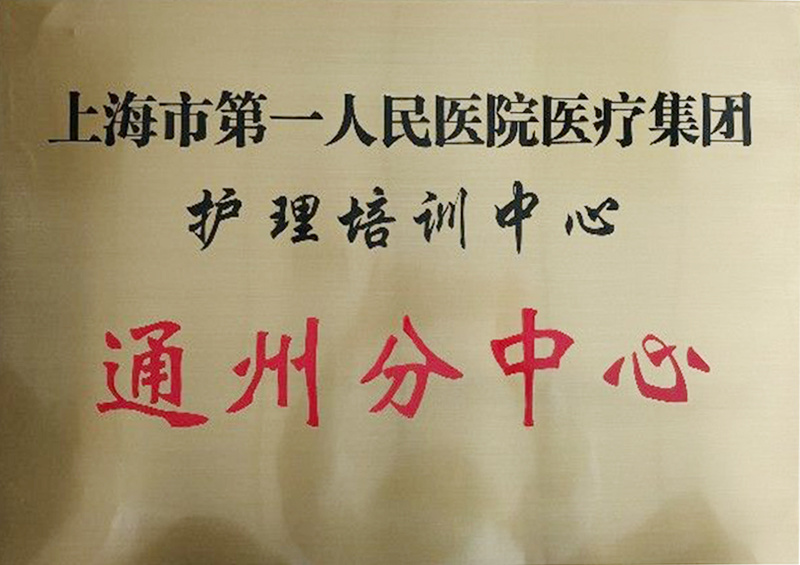 上海市第一人民医院医疗集团
护理培训中心
通州分中心